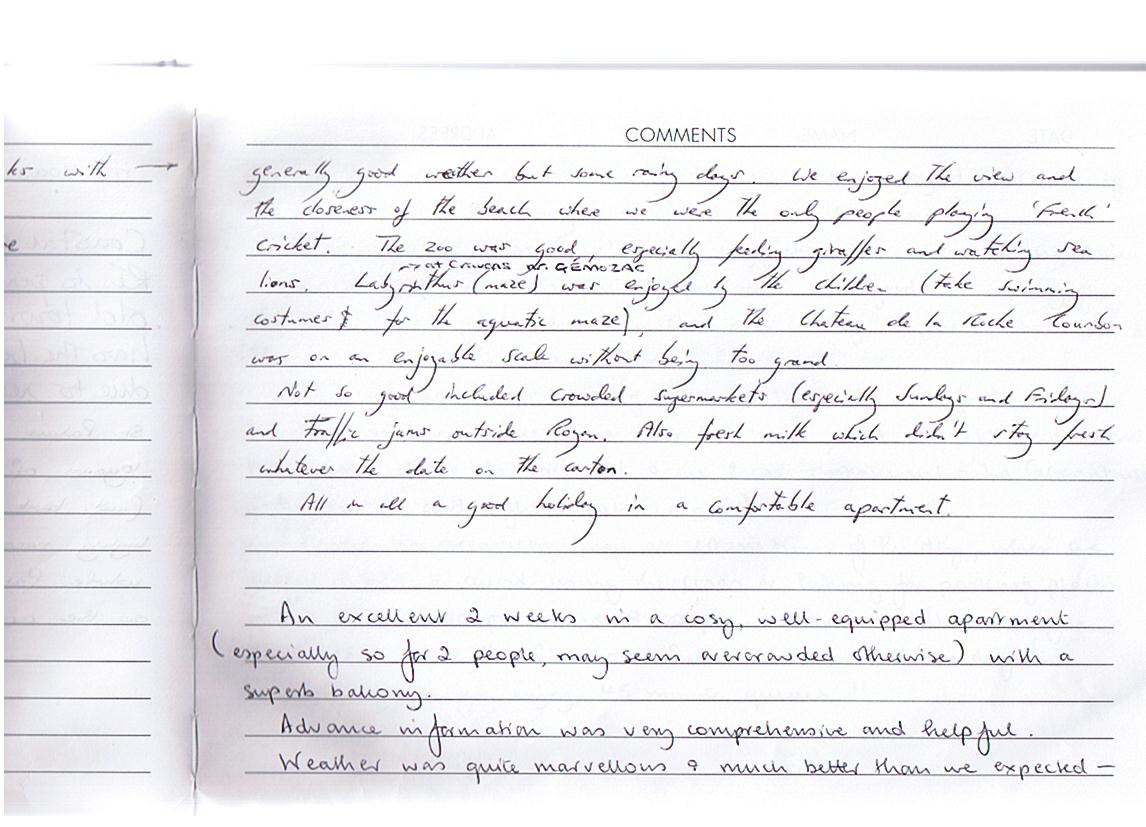 COMMENTS
ks with → generally good weather but some rainy days. We enjoyed the view and
the closeness of the beach where we were the only people playing 'French'
cricket. The zoo was good, especially feeding giraffes and watching sea
→ at Cravans nr. GÉMOZAC
lions. Labyrinthus (maze) was enjoyed by the children (take swimming
costumes for the aquatic maze), and the Chateau de la Roche Courbon
was on an enjoyable scale without being too grand.
Not so good included crowded supermarkets (especially Sundays and Fridays)
and traffic jams outside Royan. Also fresh milk which didn't stay fresh
whatever the date on the carton.
All in all a good holiday in a comfortable apartment.
An excellent 2 weeks in a cosy, well-equipped apartment
(especially so for 2 people, may seem overcrowded otherwise) with a
superb balkony.
Advance information was very comprehensive and helpful.
Weather was quite marvellous & much better than we expected –